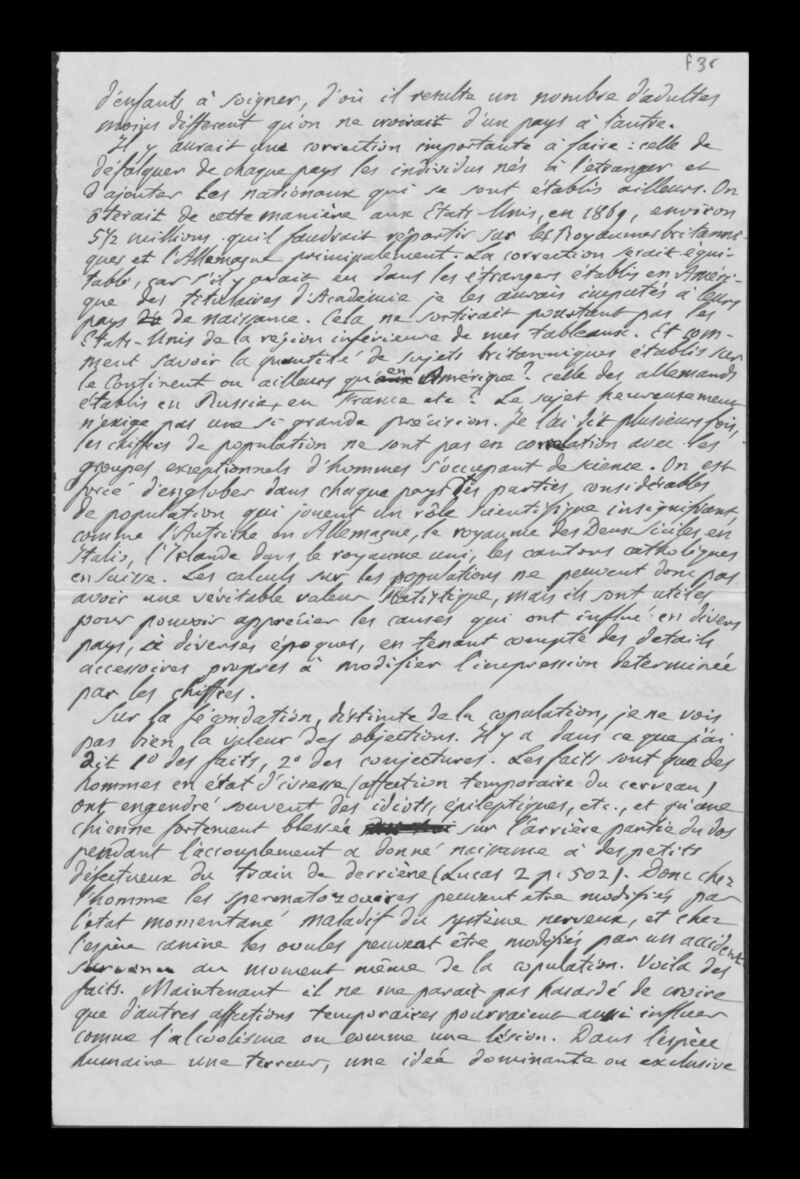 f.3r
d'enfants à soigner, d'où il resulte un nombre d'adultes
moins different qu'on ne croirait d'un pays à l'autre.
Il y aurait une correction importante à faire : celle de
défalquer de chaque pays les individus nés à l'étranger et
d'ajouter les nationaux qui se sont etablis ailleurs. On
ôterait de cette manière aux Etats-Unis, en 1869, environ
5 1/2 millions qu'il faudrait répartir sur les Royaumes britanni-
ques et l'Allemagne principalement. La correction serait équi-
table, car s'il y avait eu dans les étrangers établis en Améri-
que des titulaires d'Académie je les aurais imputés à leurs
pays de naissance. Cela ne sortirait pourtant pas les
Etats-Unis de la région inférieure de mes tableaux. Et com-
ment savoir la quantité de sujets britanniques établis sur
le Continent ou ailleurs qu'en Amérique ? celle des allemands
établis en Russie, en France etc ? Le sujet heureusement
n'exige pas une si grande précision. Je l'ai dit plusieurs fois,
les chiffres de population ne sont pas en correlation avec les
groupes exceptionnels d'hommes s'occupant de science. On est
forcé d'englober dans chaque pays des parties considérables
de population qui jouent un rôle scientifique insignifiant,
comme l'Autriche en Allemagne, le royaume des Deux Siciles en
Italie, l'Irlande dans le royaume uni, les cantons catholiques
en Suisse. Les calculs sur les populations ne peuvent donc pas
avoir une véritable valeur statistique, mais ils sont utiles
pour pouvoir apprécier les causes qui ont influé en divers
pays, à diverses époques, en tenant compte des details
accessoires propres à modifier l'impression determinée
par les chiffres.
Sur la fécondation, distincte de la copulation, je ne vois
pas bien la valeur des objections. Il y a dans ce que j'ai
dit 1° des faits, 2° des conjectures. Les faits sont que des
hommes en état d'ivresse (affection temporaire du cerveau)
ont engendré souvent des idiots, épileptiques, etc., et qu'une
chienne fortement blessée sur l'arrière partie du dos
pendant l'accouplement a donné naissance à des petits
défectueux du train de derrière (Lucas 2 p. 502). Donc chez
l'homme les spermatozoaires peuvent etre modifiés par
l'état momentané maladif du système nerveux, et chez
l'espèce canine les ovules peuvent être modifiés par un accident
survenu au moment même de la copulation. Voila des
faits. Maintenant il ne me parait pas hasardé de croire
que d'autres affections temporaires pourraient aussi influer
comme l'alcoolisme ou comme une lésion. Dans l'espèce
humaine une terreur, une idée dominante ou exclusive